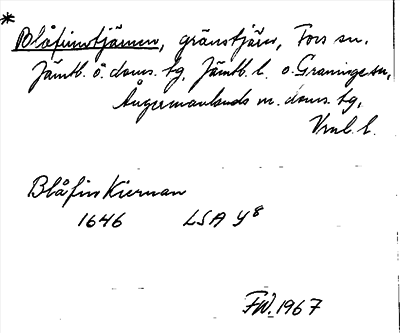 * Blåfinntjärnen, gränstjärn, Fors sn.
Jämtl. ö. doms. tg, Jämtl. l. o. Graninge sn,
Ångermanlands m. doms. tg,
Vnl. l.
Blåfin Kiernan
1646 LSA Y8
FW. 1967